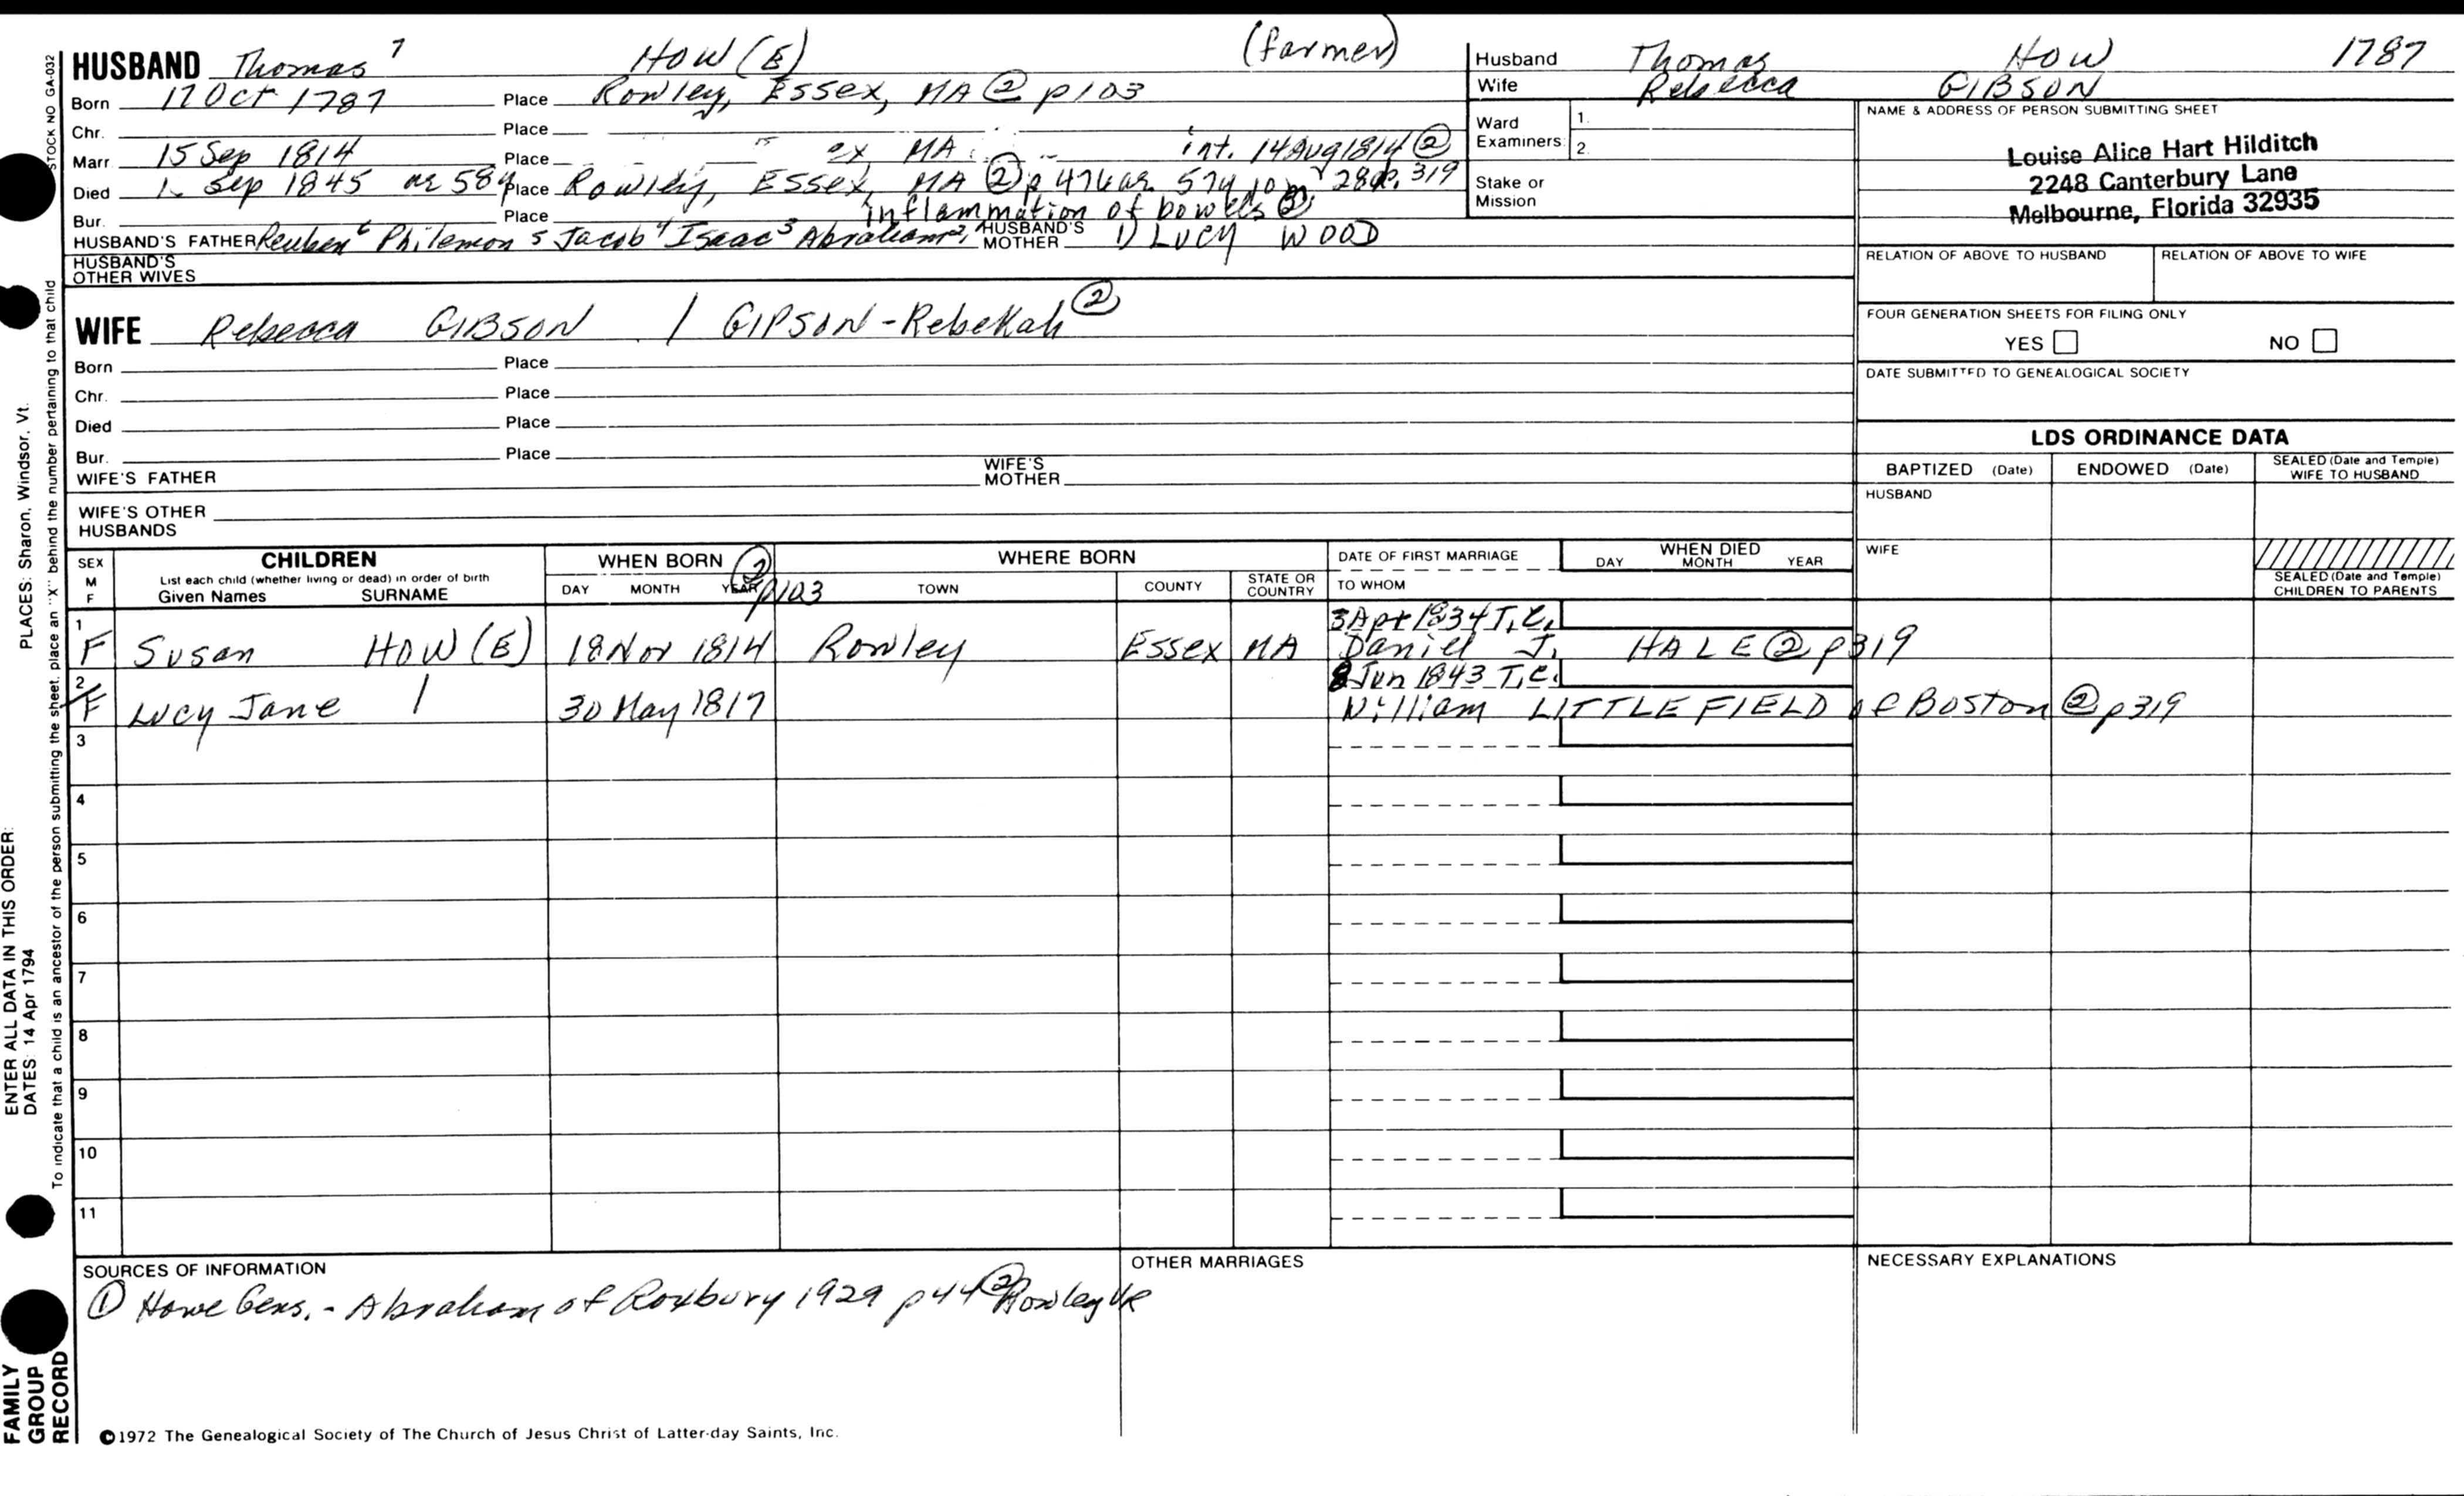 HUSBAND Thomas 7 HOW (E) (farmer)
Born 17 Oct 1787 Place Rowley, Essex, MA ② p103
Chr. Place
Marr. 15 Sep 1814 Place ex MA int. 14 Aug 1814 ②
Died Sep 1845 ae 58y Place Rowley, Essex, MA ② p 476 ae 57y 10m 28d p. 319
Bur. Place inflammation of bowels ②
HUSBAND'S FATHER Reuben 6 Philemon 5 Jacob 4 Isaac 3 Abraham 2, 1 HUSBAND'S MOTHER 1) LUCY WOOD
HUSBAND'S OTHER WIVES
WIFE Rebecca GIBSON / GIPSON - Rebekah ②
Born Place
Chr. Place
Died Place
Bur. Place
WIFE'S FATHER WIFE'S MOTHER
WIFE'S OTHER HUSBANDS
Husband Thomas HOW 1787
Wife Rebecca GIBSON
Ward Examiners: 1. 2.
Stake or Mission
NAME & ADDRESS OF PERSON SUBMITTING SHEET
Louise Alice Hart Hilditch
2248 Canterbury Lane
Melbourne, Florida 32935
RELATION OF ABOVE TO HUSBAND RELATION OF ABOVE TO WIFE
FOUR GENERATION SHEETS FOR FILING ONLY
YES NO
DATE SUBMITTED TO GENEALOGICAL SOCIETY
LDS ORDINANCE DATA
BAPTIZED (Date) ENDOWED (Date) SEALED (Date and Temple) WIFE TO HUSBAND
HUSBAND
WIFE
SEALED (Date and Temple) CHILDREN TO PARENTS
SEX M F
CHILDREN
List each child (whether living or dead) in order of birth
Given Names SURNAME
WHEN BORN ②
DAY MONTH YEAR p103
WHERE BORN
TOWN COUNTY STATE OR COUNTRY
DATE OF FIRST MARRIAGE
TO WHOM
WHEN DIED
DAY MONTH YEAR
3 Apr 1834 T.C.
1 F Susan HOW (E) 18 Nov 1814 Rowley Essex MA Daniel J. HALE ② p319
8 Jun 1843 T.C.
2 F Lucy Jane 30 May 1817 William LITTLEFIELD of Boston ② p319
3
4
5
6
7
8
9
10
11
SOURCES OF INFORMATION
① Howe Gens. - Abraham of Roxbury 1929 p44 ② Rowley VR
OTHER MARRIAGES
NECESSARY EXPLANATIONS
©1972 The Genealogical Society of The Church of Jesus Christ of Latter-day Saints, Inc.
STOCK NO GA-032
To indicate that a child is an ancestor of the person submitting the sheet, place an "X" behind the number pertaining to that child
ENTER ALL DATA IN THIS ORDER:
DATES: 14 Apr 1794 PLACES: Sharon, Windsor, Vt.
FAMILY GROUP RECORD